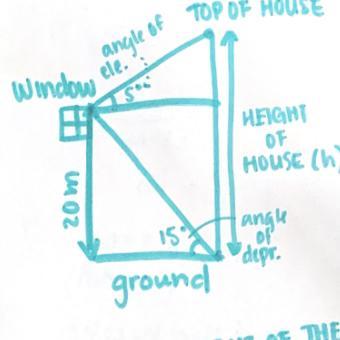 TOP OF HOUSE
angle of
ele.
5°
Window
HEIGHT
OF
HOUSE (h)
20m
15°
angle
of
depr.
ground
OF THE